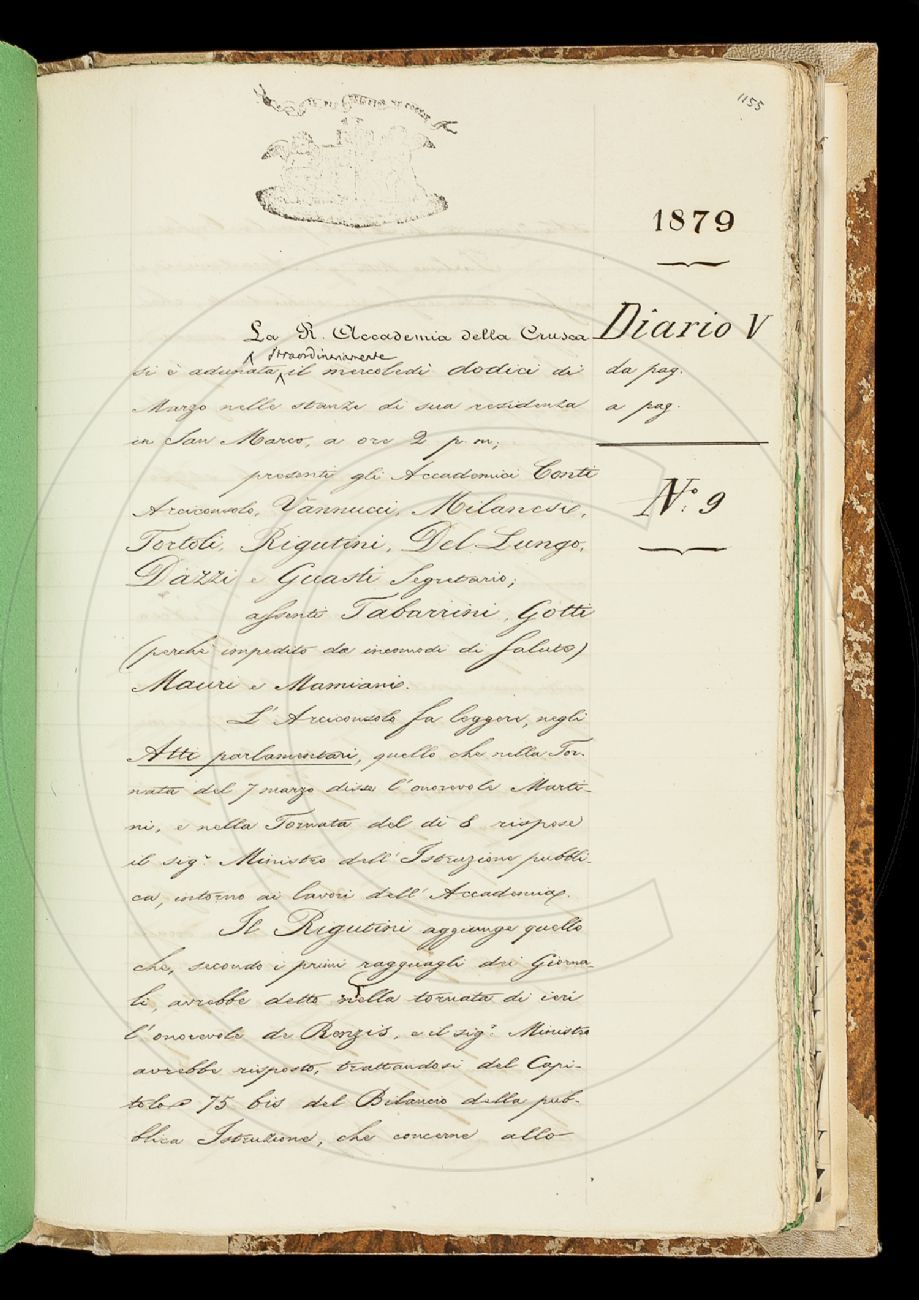 1155
1879
Diario V
da pag.
a pag.
N.o 9
La R. Accademia della Crusca
straordinariamente
si è adunata, il mercoledì dodici di
Marzo nelle stanze di sua residenza
in San Marco, a ore 2 p. m;
presenti gli Accademici Conti
Arciconsolo, Vannucci, Milanesi,
Tortoli, Rigutini, Del-Lungo,
Dazzi e Guasti Segretario;
assenti Tabarrini, Gotti
(perchè impedito da incomodi di salute)
Mauri e Mamiani.
L'Arciconsolo fa leggere, negli
Atti parlamentari, quello che nella Tor-
nata del 7 marzo disse l'onorevole Marti-
ni, e nella Tornata del dì 8 rispose
il sig.r Ministro dell'Istruzione pubbli-
ca, intorno ai lavori dell'Accademia.
Il Rigutini aggiunge quello
che, secondo i primi ragguagli dei Giorna-
li, avrebbe detto nella tornata di ieri
l'onorevole de Renzis, e il sig.r Ministro
avrebbe risposto, trattandosi del Capi-
tolo 75 bis del Bilancio della pub-
blica Istruzione, che concerne allo